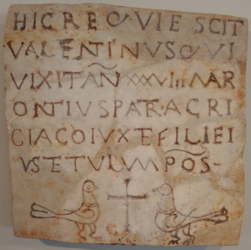 HIC REQVIESCIT
VALENTINVS QVI
VIXIT AN XXXVIII AAR
ONTIVS PATAGRI
CIACOIVXTEFILIEI
VSETVLVMPOS